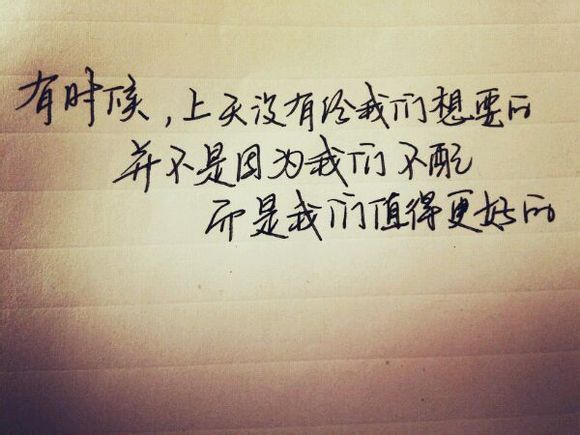 有时候,上天没有给我们想要的
并不是因为我们不配
而是我们值得更好的